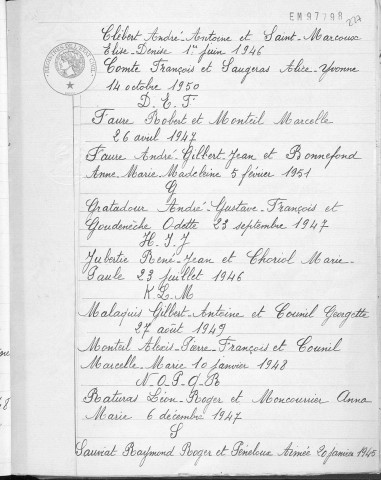 EM97798 227
Clébert André-Antoine et Saint-Marcoux
Elise-Denise 1er juin 1946
Comte François et Saugeras Alice-Yvonne
14 octobre 1950
D. E. F
Faure Robert et Monteil Marcelle
26 avril 1947
Faure André-Gilbert-Jean et Bonnefond
Anne-Marie-Madeleine 5 février 1951
G
Gratadour André-Gustave-François et
Goudenèche Odette 23 septembre 1947
H. I. J
Jubertie René-Jean et Choriol Marie-
Paule 23 juillet 1946
K. L. M
Malaquis Gilbert-Antoine et Counil Georgette
27 août 1949
Monteil Alexis-Pierre-François et Counil
Marcelle-Marie 10 janvier 1948
N-O.P.Q.R
Raturas Léon-Roger et Moncourrier Anna
Marie 6 décembre 1947
S
Sauviat Raymond Roger et Péneloux Aimée 20 janvier 1945